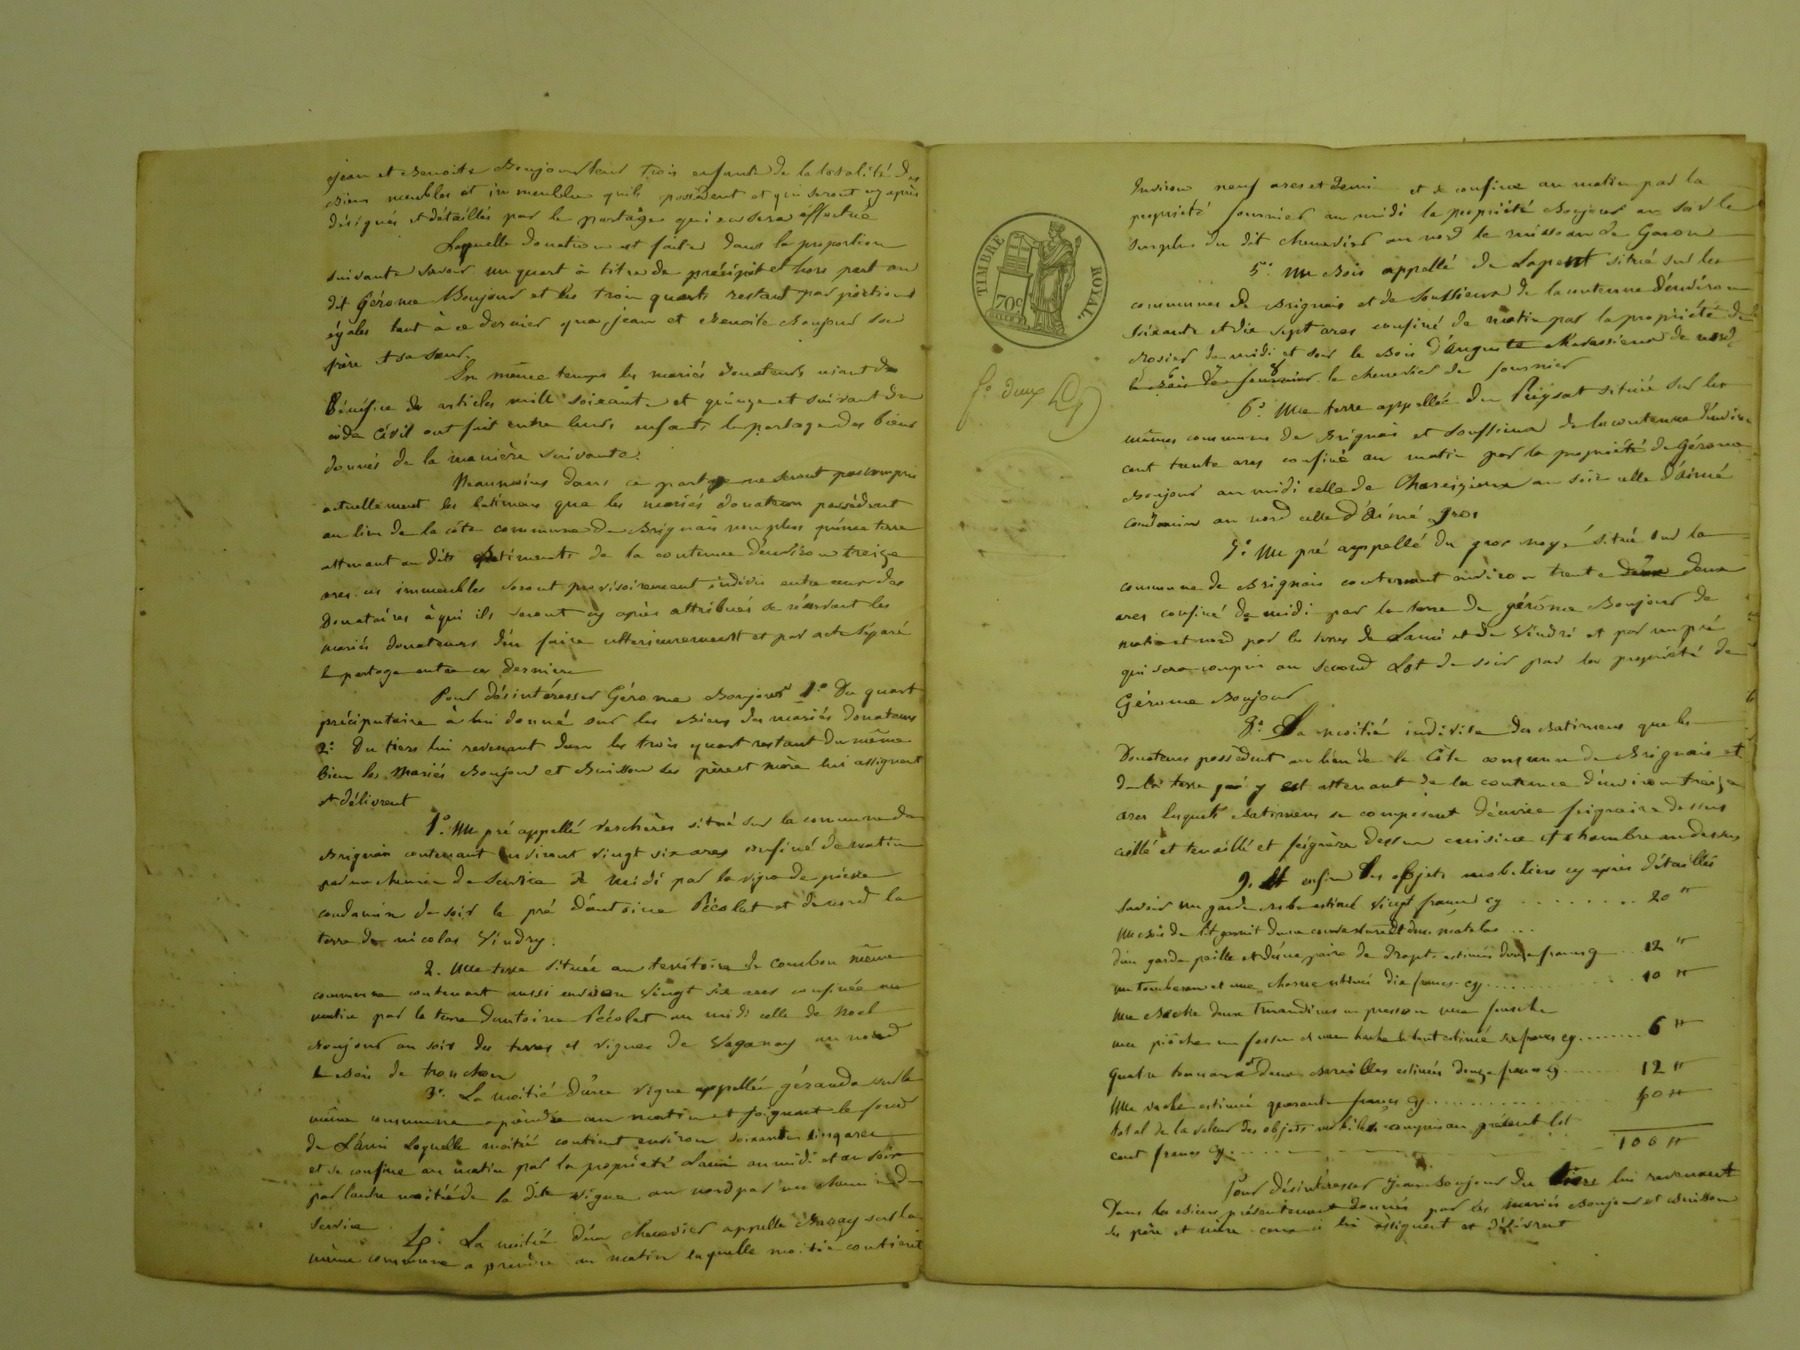 jean et Benoite Bonjour leurs trois enfants de la totalité des
Biens meubles et immeubles quils possèdent et qui seront cy après
désignés et détaillés par le partage qui en sera éffectué
Laquelle donation est faite dans la proportion
suivante savoir un quart à titre de précipit et hors part au
dit Gérome Bonjour et les trois quarts restant par portions
égales tant à ce dernier qua jean et Benoite Bonjour son
frère et sa sœur.
En même temps les mariés donateurs usant du
Bénéfice des articles mill soixante et quinze et suivant du
code Civil ont fait entre leurs enfants le partage des biens
donnés de la manière suivante
Neanmoins dans ce partage ne seront pas compris
actuellement les batimens que les mariés donateurs possèdent
au lieu de la côte commune de Brignais non plus quune terre
attenant au dits Batiments de la contenue d'environ treize
ares ces immeubles seront provisoirement indivis entre ceux des
Donataires à qui ils seront cy après attribués se réservant les
mariés donateurs d'en faire ulterieurement et par acte séparé
le partage entre ces derniers
Pour désintéresser Gérome Bonjour 1.º Du quart
préciputaire à lui donné sur les Biens des mariés donateurs
2º. Du tiers lui revenant dans les trois quart restant du même
bien les Mariés Bonjour et Buisson ses père et mère lui assignent
et délivrent
1.º Un pré appellé verchères situé sur la commune de
Brignais contenant environt vingt six ares confiné de matin
par un chemin de service de midi par la vigne de pierre
condamin de soir le pré d'antoine Pécolat et de nord la
terre de nicolas Vindry.
2. une terre située au territoire de combou même
commune contenant aussi environ vingt six ares confinée au
matin par la terre dantoine Pécolat au midi celle de Noel
Bonjour au soir des terres et vignes de Vaganay au nord
le Bois de tronchon
3º. La moitié d'une vigne appellée gérande sur la
même commune a prendre au matin et joignant le fond
de Lami Laquelle moitié contient environ soixante cinq ares
et se confine au matin par la propriété Lami au midi et au soir
par l'autre moitié de la dite vigne au nord par un chemin de
service
4º. La moitié d'un chenevier appellé sur la
même commune a prendre au matin laquelle moitié contient
TIMBRE ROYAL.
70c
fo. deux
Environ neuf ares et demi et se confine au matin par la
propriété fournier au midi la propriété Bonjour au soir le
surplus du dit chenevier au nord le ruisseau de Garon
5º. Un Bois appellé de Lapent situé sur les
communes de Brignais et de Souffieux de la contenue d'environ
soixante et dix sept ares confiné de matin par la propriété de
Rosier de midi et soir le Bois d'auguste de nord
le Bois de fournier le chenevier de fournier
6º Une terre appellée du Peysat située sur les
mêmes communes de Brignais et Souffieux de la contenue d'environ
cent trente ares confiné au matin par la propriété de Gérome
Bonjour au midi celle de au soir celle d'aimé
condamin au nord celle d'Aimé gros
7º. Un pré appellé du gros noyé situé sur la
commune de Brignais contenant environ trente deux deux
ares confiné de midi par la terre de gérome Bonjour de
matin et nord par les terres de Lami et de Vindri et par un pré
qui sera compris au second Lot de soir par la propriété de
Gérome Bonjour
8º. La moitié indivise des Batimens que les
Donateurs possèdent au lieu de la Côte commune de Brignais et
de la terre qui y est attenant de la contenue d'environ treize
ares lesquels Batimens se composent d'écurie feignaire dessus
cellé et tenaillé et feignère dessus cuisine et chambre au dessus
9. Et enfin Les objets mobiliers cy après détaillés
Savoir un garde robe estimé vingt francs cy ........ 20 ₶
un Bois de lit garnit dune couverture et dun matelas ...
d'un garde paille et d'une paire de draps estimés douze francs cy .. 12 ₶
un tombereau et une charue estimés dix francs cy ........ 10 ₶
une Bêche deux un pressoir une fourche
une pioche un fessou et une hache le tout estimé six francs cy ....... 6 ₶
quatre tonneaux et deux Bareilles estimés douze francs cy ........ 12 ₶
une vache estimée quarante francs cy ........ 40 ₶
total de la valeur des objets mobiliers compris au présent lot
cent francs cy ........ 100 ₶
Pour désintéresser jean Bonjour du tiers lui revenant
Dans les Biens présentement donnés par les mariés Bonjour et Buisson
ses père et mère ceux ci lui assignent et délivrent